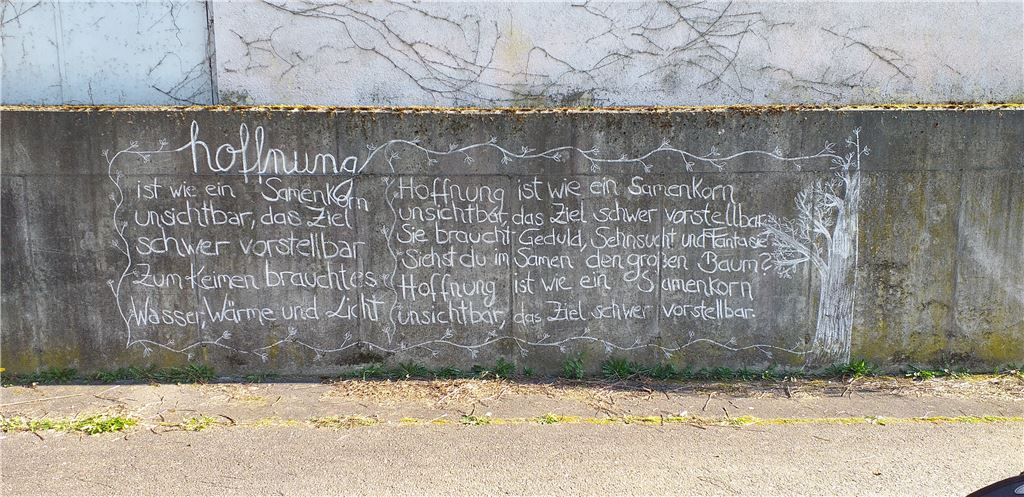 hoffnung
ist wie ein Samenkorn
unsichtbar, das Ziel
schwer vorstellbar
Zum Keimen braucht es
Wasser, Wärme und Licht
Hoffnung ist wie ein Samenkorn
unsichtbar, das Ziel schwer vorstellbar
Sie braucht Geduld, Sehnsucht und Fantasie
Siehst du im Samen den großen Baum?
Hoffnung ist wie ein Samenkorn
unsichtbar, das Ziel schwer vorstellbar.